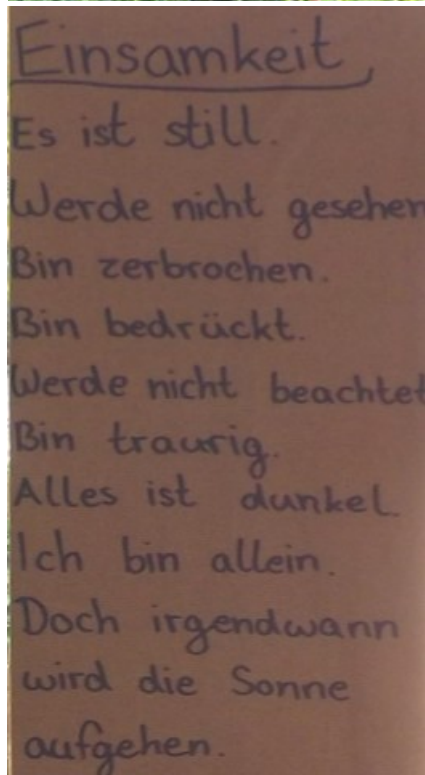 Einsamkeit
Es ist still.
Werde nicht gesehen
Bin zerbrochen.
Bin bedrückt.
Werde nicht beachtet
Bin traurig.
Alles ist dunkel.
Ich bin allein.
Doch irgendwann
wird die Sonne
aufgehen.